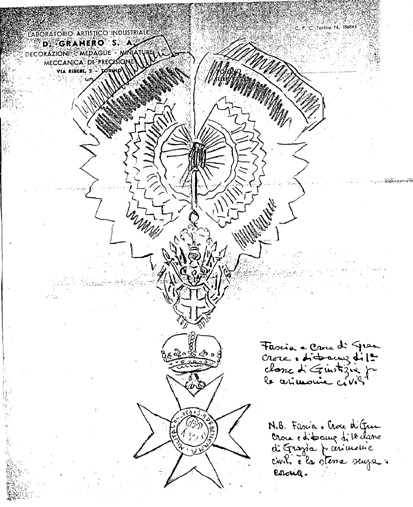 LABORATORIO ARTISTICO INDUSTRIALE
D. GRANERO S. A.
DECORAZIONI - MEDAGLIE - MINIATURE
MECCANICA DI PRECISIONE
VIA RIBERI, 2 - TORINO
C. P. C. Torino N.
Fascia e Croce di Gran
Croce e di Dama di 1ª
classe di Giustizia p
le cerimonie civili
N.B. Fascia e Croce di Gran
Croce e di Dama di 1ª classe
di Grazia p cerimonie
civili è la stessa senza
corona.